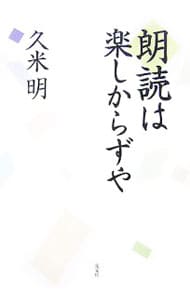 朗読は
楽しからずや
久米明